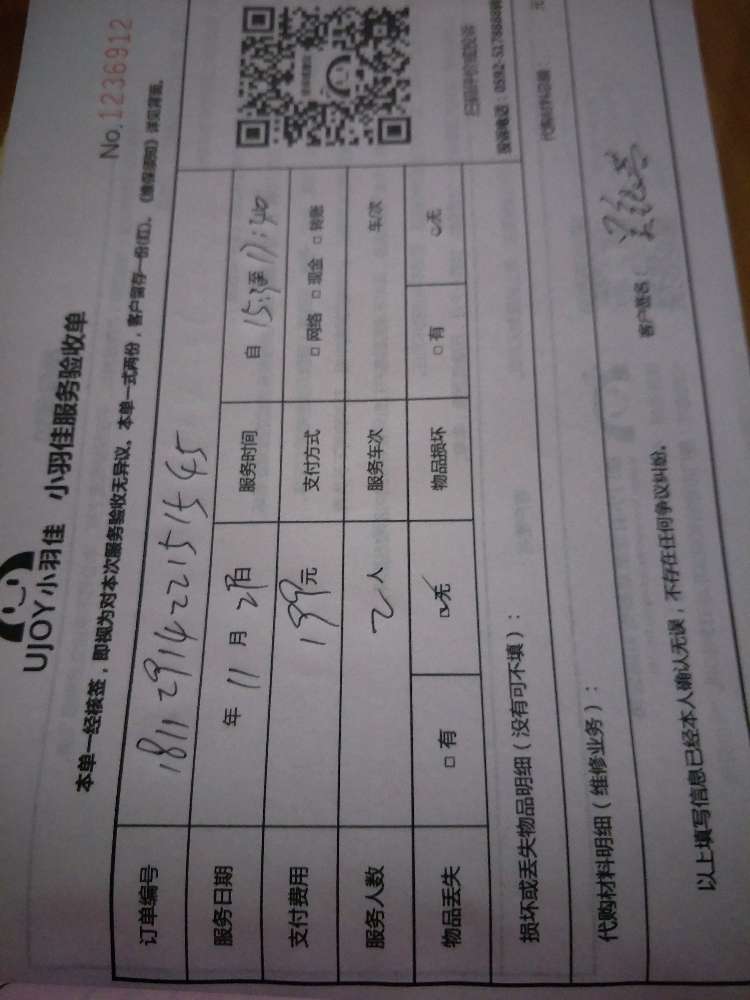 UJOY小羽佳 小羽佳服务验收单
No.1236912
本单一经核签，即视为对本次服务验收无异议。本单一式两份，客户留存一份(红)。《维保须知》详见背面。
订单编号 181129142215 1545
服务日期 年 11 月 29日 服务时间 自 15:3至 17:40
支付费用 199元 支付方式 □ 网络 □ 现金 □ 转账
服务人数 2人 服务车次 车/次
物品丢失 □ 有 ☑无 物品损坏 □ 有 ☑无
扫码评价或投诉
损坏或丢失物品明细（没有可不填）：
代购材料明细（维修业务）：
代购材料总额： 元
以上填写信息已经本人确认无误，不存在任何争议纠纷。
客户签名：